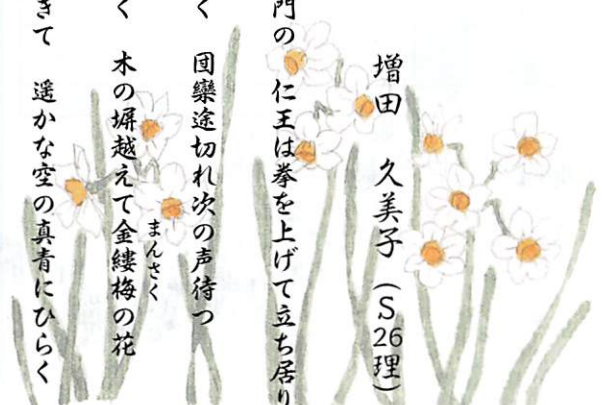 増田 久美子 (S26理)
門の 仁王は拳を上げて立ち居り
く 団欒途切れ次の声待つ
く 木の塀越えて金縷梅の花
まんさく
きて 遥かな空の真青にひらく